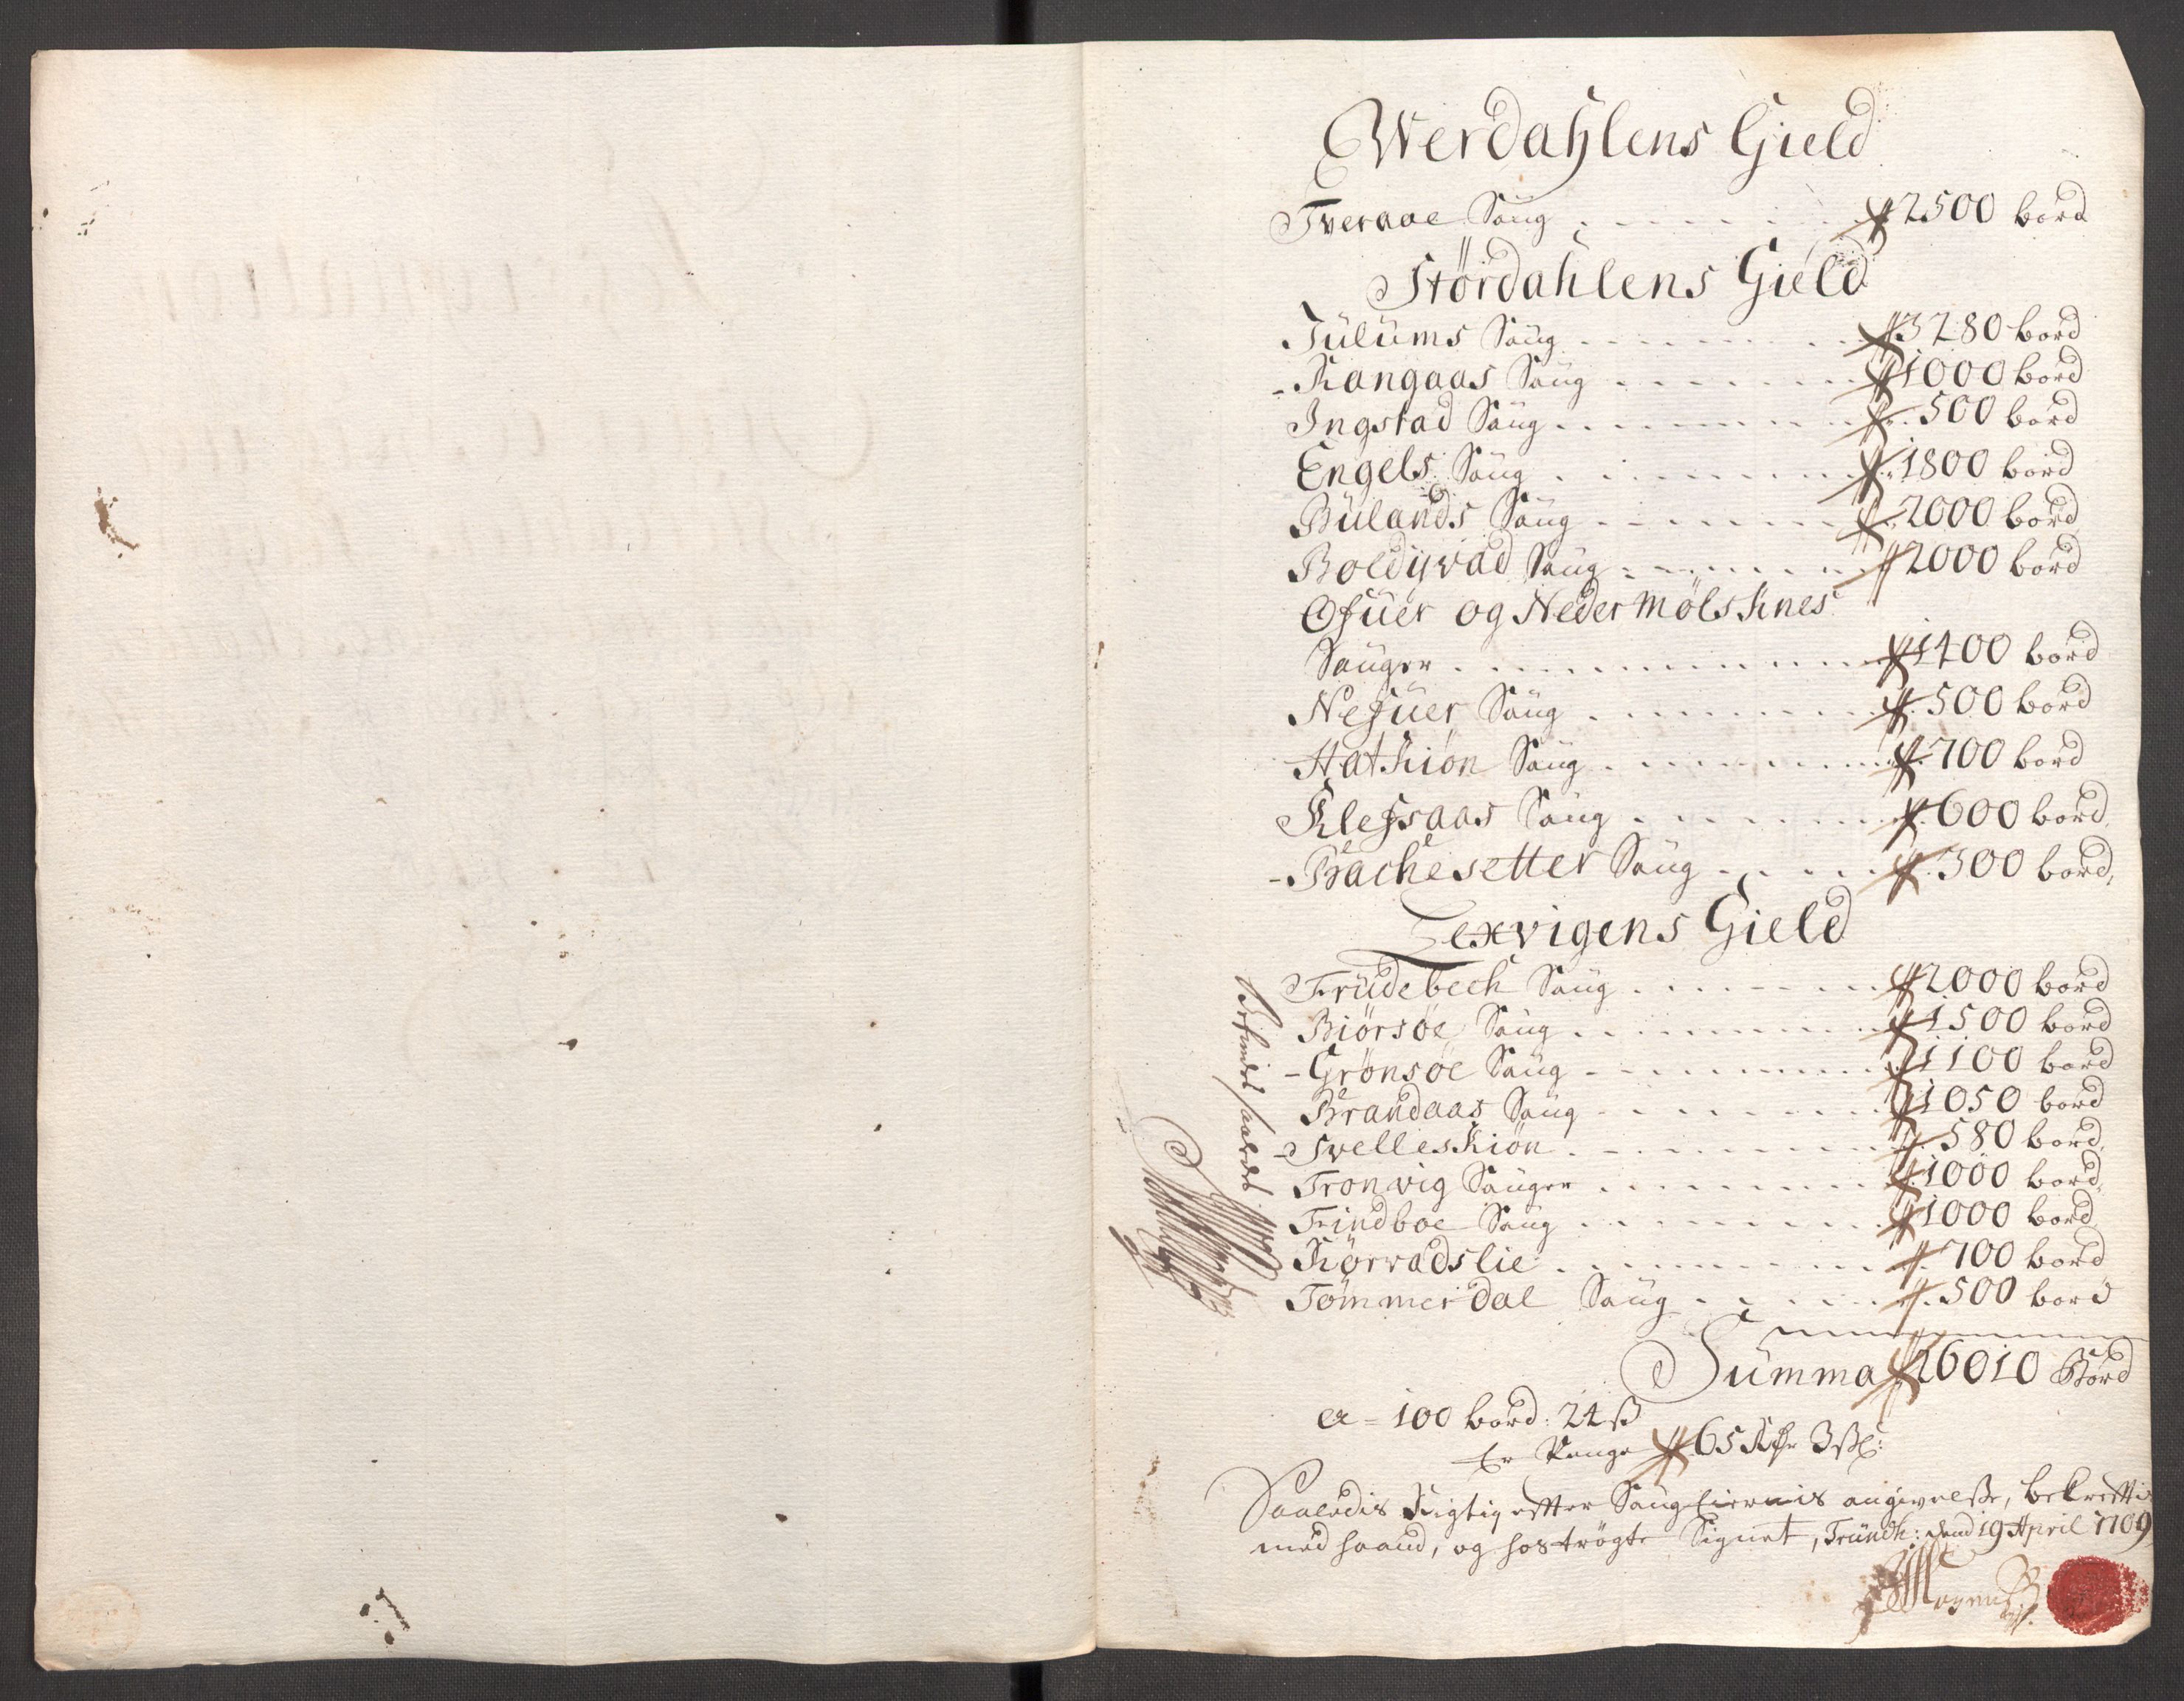 Werdahlens Gield
Tveraae Saug 2500 bord
Størdahlens Gield
Julums Saug 3280 bord
Kangaas Saug 1000 bord
Ingstad Saug 500 bord
Engels Saug 1800 bord
Bulands Saug 2000 bord
Boldijvad Saug 2000 bord
Ofuer og Neder Mølsknes
Sauger 1400 bord
Nefuer Saug 500 bord
Hatkiøn Saug 700 bord
Klefsaas Saug 600 bord
Bachesetter Saug 300 bord
Lexvigens Gield
Frudebech Saug 2000 bord
Biørsøe Saug 1500 bord
Grønsøe Saug 1100 bord
Brandaas Saug 1050 bord
Svelleskiøn 580 bord
Tronwig Sauger 1000 bord
Findboe Saug 1000 bord
Kiørvadslie 700 bord
Tømmerdal Saug 500 bord
Summa 26010 Bord
a 100 bord: 24 ß
Er Penge 65 Rdr 3 ß:
Saaledis Rigtig efter Saug Eiernis angivelße, bekreftis
med haand, og hostrøgte Signet, Trundh: dend 19 April 1709
Befindes saaledes